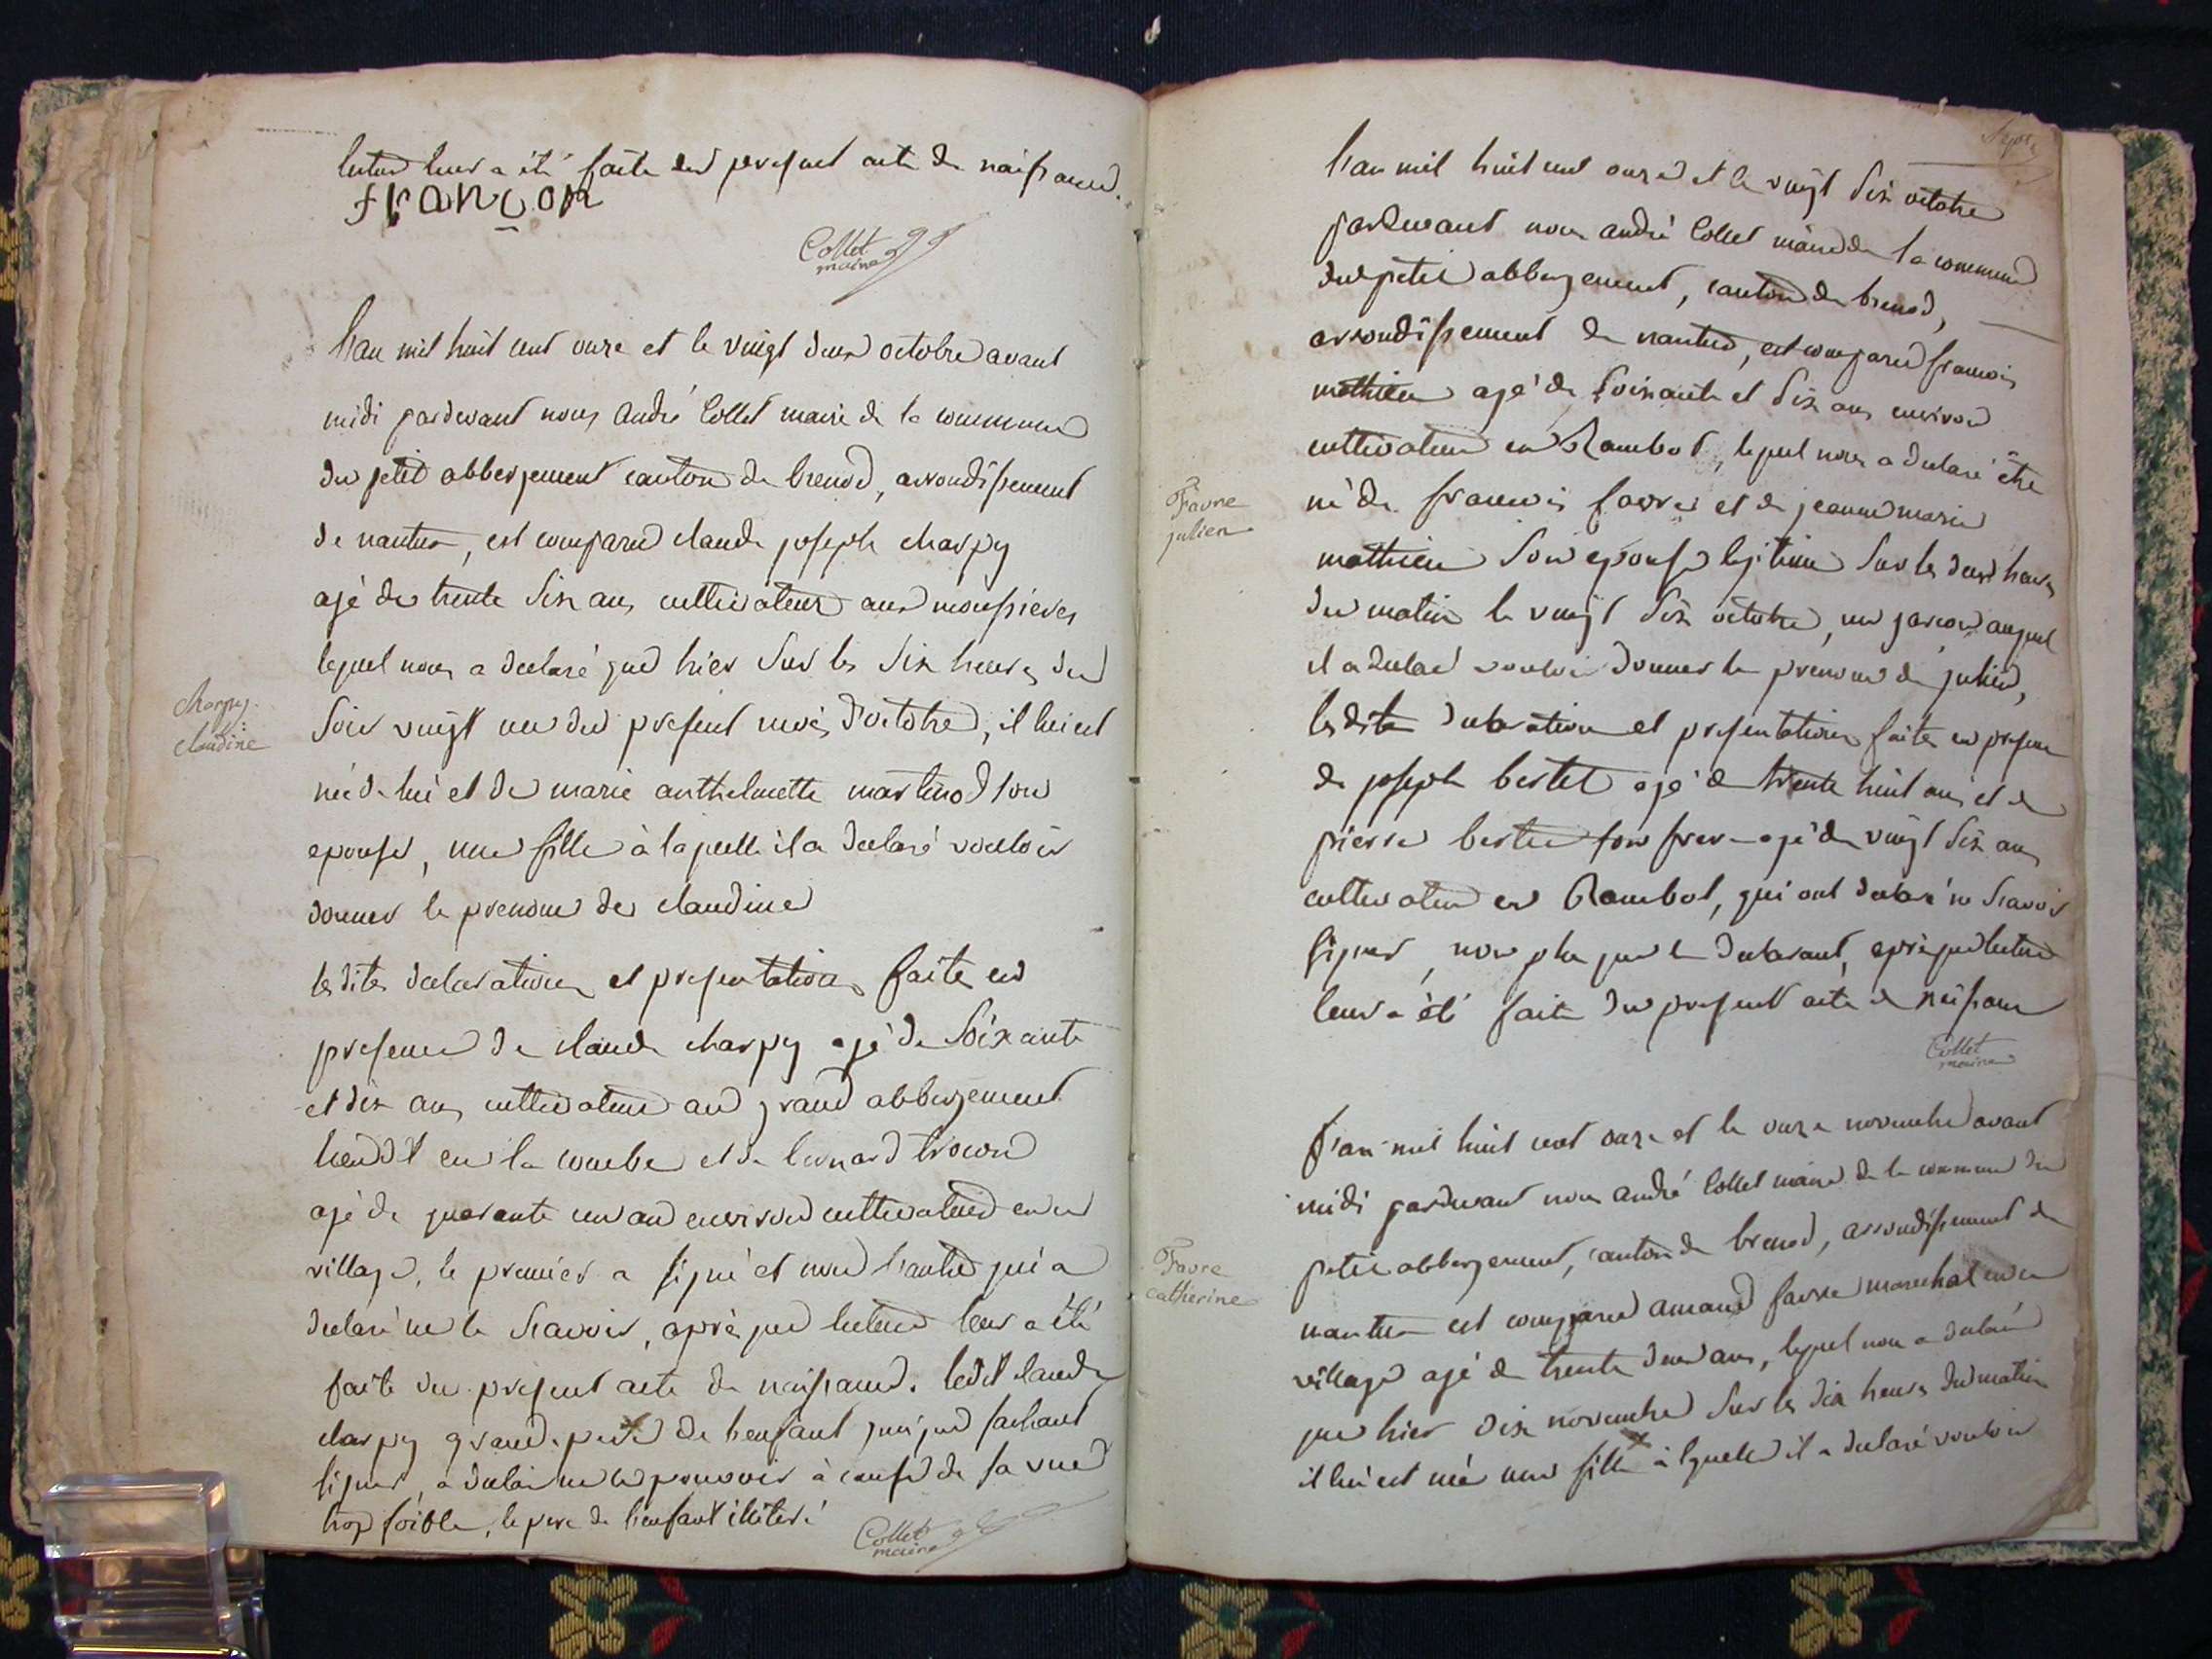 lecture leur a été faite du present acte de naissance.
françon
Collet
maire
L'an mil huit cent onze et le vingt deux octobre avant
midi pardevant nous andré Collet maire de la commune
du petit abbergement canton de brenod, arrondissement
de nantua, est comparu claude joseph charpy
agé de trente six ans, cultivateur aux moussieres
lequel nous a declaré que hier sur les six heures du
soir vingt un du present mois d'octobre, il lui est
née de lui et de marie anthelmette martinod son
epouse, une fille à laquelle il a declaré vouloir
donner le prenom de claudine
lesdites declaration et presentation faites en
presence de claude charpy agé de soixante
et dix ans cultivateur au grand abbergement
lieudit en la combe et de bernard
agé de quarante un an environ cultivateur en ce
village, le premier a signé et non l'autre qui a
declaré ne le scavoir, après que lecture leur a été
faite du present acte de naissance. ledit claude
charpy grand-pere de l'enfant quique sachant
signer, a declaré ne le pouvoir à cause de sa vue
trop foible, le pere de l'enfant illiteré
Collet
maire
charpy
claudine
L'an mil huit cent onze et le vingt six octobre
pardevant nous andré Collet maire de la commune
du petit abbergement, canton de brenod,
arrondissement de nantua, est comparu francois
mathieu agé de soixante et dix ans environ
cultivateur en Rambot, lequel nous a declaré être
né de francois favre et de jeanne marie
mathieu son epouse legitime sur les deux heures
du matin le vingt six octobre, un garcon auquel
il a declaré vouloir donner le prenom de julien,
lesdites declaration et presentation faites en presence
de joseph bertet agé de trente huit ans et de
pierre bertet son frere agé de vingt six ans
cultivateur en Rambot, qui ont declaré ne scavoir
signer, non plus que le declarant, après que lecture
leur a été faite du present acte de naissance
Collet
maire
Favre
julien
L'an mil huit cent onze et le onze novembre avant
midi pardevant nous andré Collet maire de la commune du
petit abbergement, canton de brenod, arrondissement de
nantua est comparu amand favre marechal en ce
village agé de trente deux ans, lequel nous a declaré
que hier dix novembre sur les dix heures du matin
il lui est née une fille à lquelle il a declaré vouloir
Favre
catherine